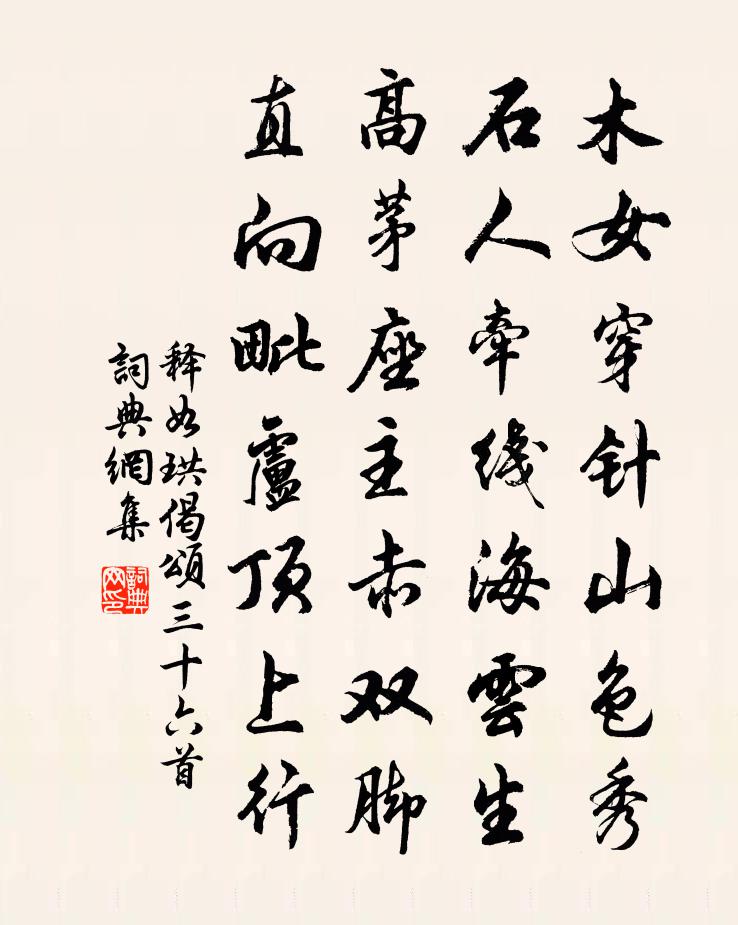 木女穿针山色秀
石人牵线海雲生
高茅座主赤双脚
直向毗盧顶上行
释如珙偈頌三十六首
詞典網集
詞典网印